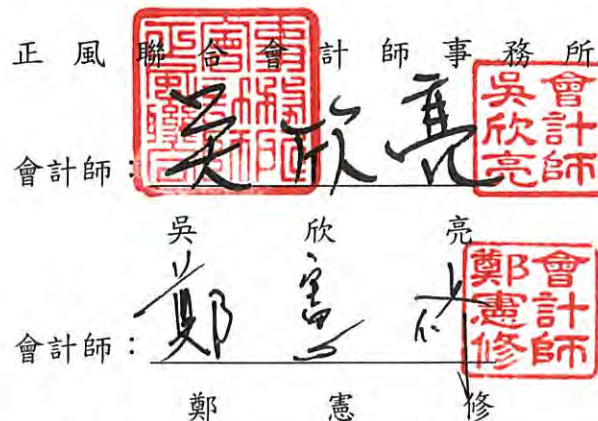 正風聯合會計師事務所
會計師：吳欣亮
會計師
吳欣亮
吳欣亮
會計師：鄭憲修
會計師
鄭憲修
鄭憲修